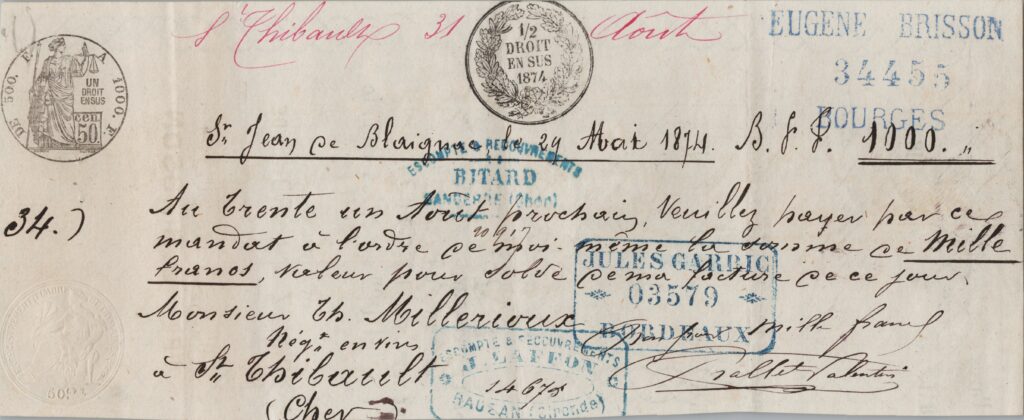 St Thibault 31 Août
DE 500. F. A 1000. F.
UN
DROIT
EN SUS
cen
50
1/2
DROIT
EN SUS
1874
EUGENE BRISSON
34455
BOURGES
St Jean de Blaignac le 29 Mai 1874. B. P. F. 1000. "
ESCOMPTE & RECOUVREMENTS
BITARD
SANCERRE (Cher)
34.)
Au trente un Août prochain, Veuillez payer par ce
mandat à l'ordre de moi-même la somme de Mille
francs, valeur pour solde de ma facture de ce jour
20917
JULES GARRIC
03579
BORDEAUX
Monsieur Th. Millerioux
Négt en vins
à St Thibault
(Cher).
mille francs
ESCOMPTE & RECOUVREMENTS
14678
RAUZAN (Gironde)